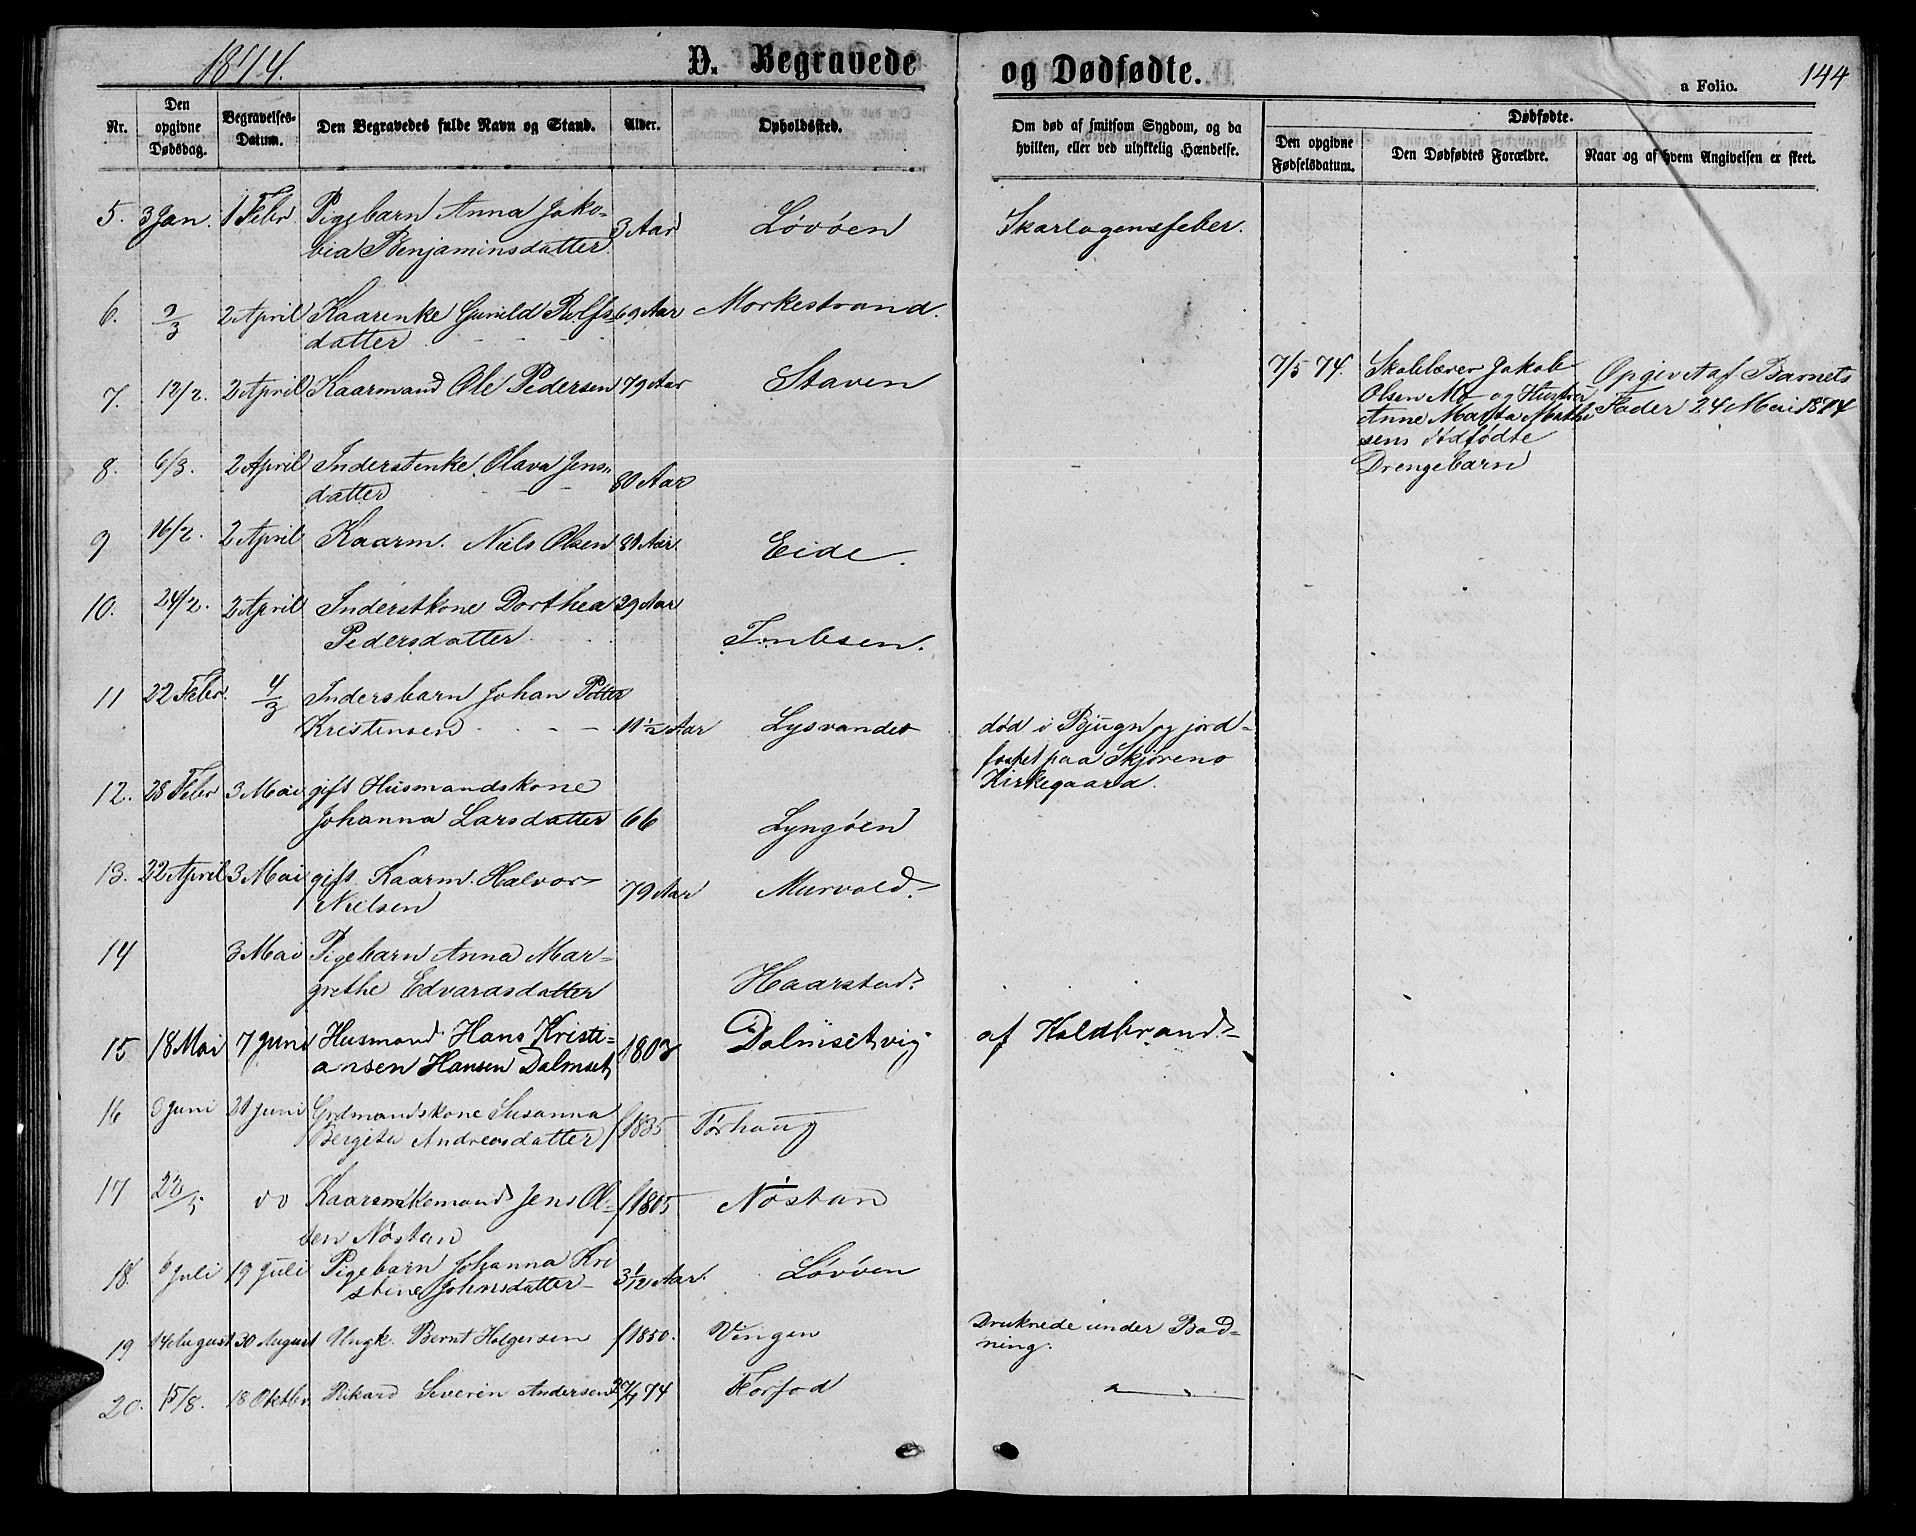 1874.
D. Begravede
og Dødfødte.
a Folio.
144
Nr.
Den opgivne Dødsdag.
Begravelses-Datum.
Den Begravedes fulde Navn og Stand.
Alder.
Opholdssted.
Om død af smitsom Sygdom, og da hvilken, eller ved ulykkelig Hændelse.
Dødfødte.
Den opgivne Fødselsdatum.
Den Dødfødtes Forældre.
Naar og af hvem Angivelsen er skeet.
5. 3 Jan. 1 Febr. Pigebarn Anna Jako-
bia Benjaminsdatter. 3 Aar Løvøen Skarlagensfeber.
6. 2 April Kaarenke Gunild Rolfs- 69 Aar Morkestrand.
datter
7. 12/2. 2 April Kaarmand Ole Pedersen 79 Aar Staven
7/5 74. Skolelærer Jakob
Olsen Mø og Hustru
Anne Marta Mathi
sens dødfødte
Drengebarn
Opgivet af Barnets
Fader 24 Mai 1874
8. 6/3. 2 April Inderstenke Olava Jens-
datter 80 Aar
9 16/2. 2 April Kaarm. Niels Olsen 80 Aar. Eide.
10. 24/2. 2 April Inderstkone Dorthea 29 Aar
Pedersdatter
11 22 Febr. 4/3 Indersbarn Johan Petter
Kristensen 11 1/2 Aar Lysvandet død i Bjugn og jord-
fæstet paa Skjørens
Kirkegaard.
12. 28 Febr 3 Mai gift Husmandskone
Johanna Larsdatter 66 Lyngøen
13. 22 April 3 Mai gift. Kaarm. Halvor
Nielsen 79 Aar Murvold.
14 3 Mai Pigebarn Anna Mar-
grethe Edvardsdatter Haarstad.
15 18 Mai 7 Juni Husmand Hans Kristi-
ansen Hansen Dalmset 1803 Dalmsetvig af Koldbrand
16 21 Juni Grdmandskone Susanna
Bergita Andreasdatter f 1835 Tørhoug
17 do Jens Ol-
sen Nøstan f 1805 Nøstan
18. 6 Juli 19 Juli Pigebarn Johanna Kri
stine Johnsdatter 3 1/2 Aar. Løvøen
19 14 August 30 August Ungk. Bernt Holgersen f 1850. Vingen Druknede under Bad-
ning.
20. 15/8. 18 Oktbr. Rikard Severin Andersen 74 Forfod